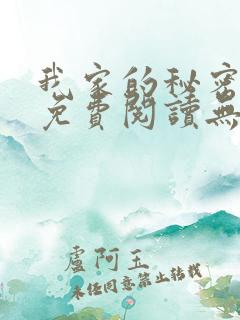 我家的秘密
免費閱讀無
盧阿玉
未經同意禁止轉載